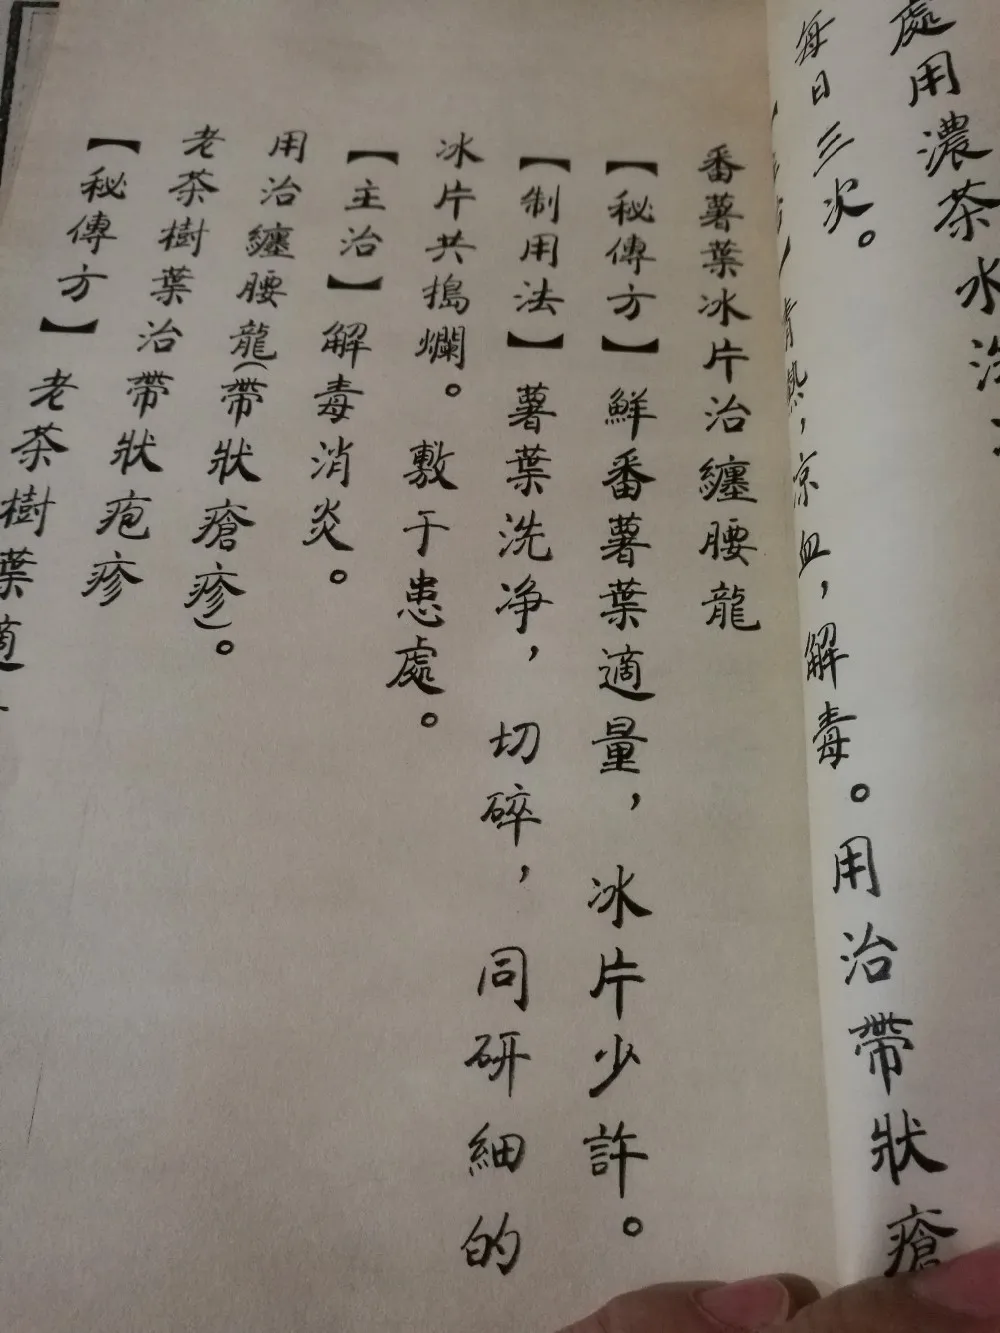 處用濃茶水洗
每日三次。
清熱，涼血，解毒。用治帶狀瘡
番薯葉冰片治纏腰龍
【秘傳方】鮮番薯葉適量，冰片少許。
【制用法】薯葉洗净，切碎，同研細的
冰片共搗爛。敷于患處。
【主治】解毒消炎。
用治纏腰龍（帶狀瘡疹）。
老茶樹葉治帶狀疱疹
【秘傳方】老茶
樹葉適